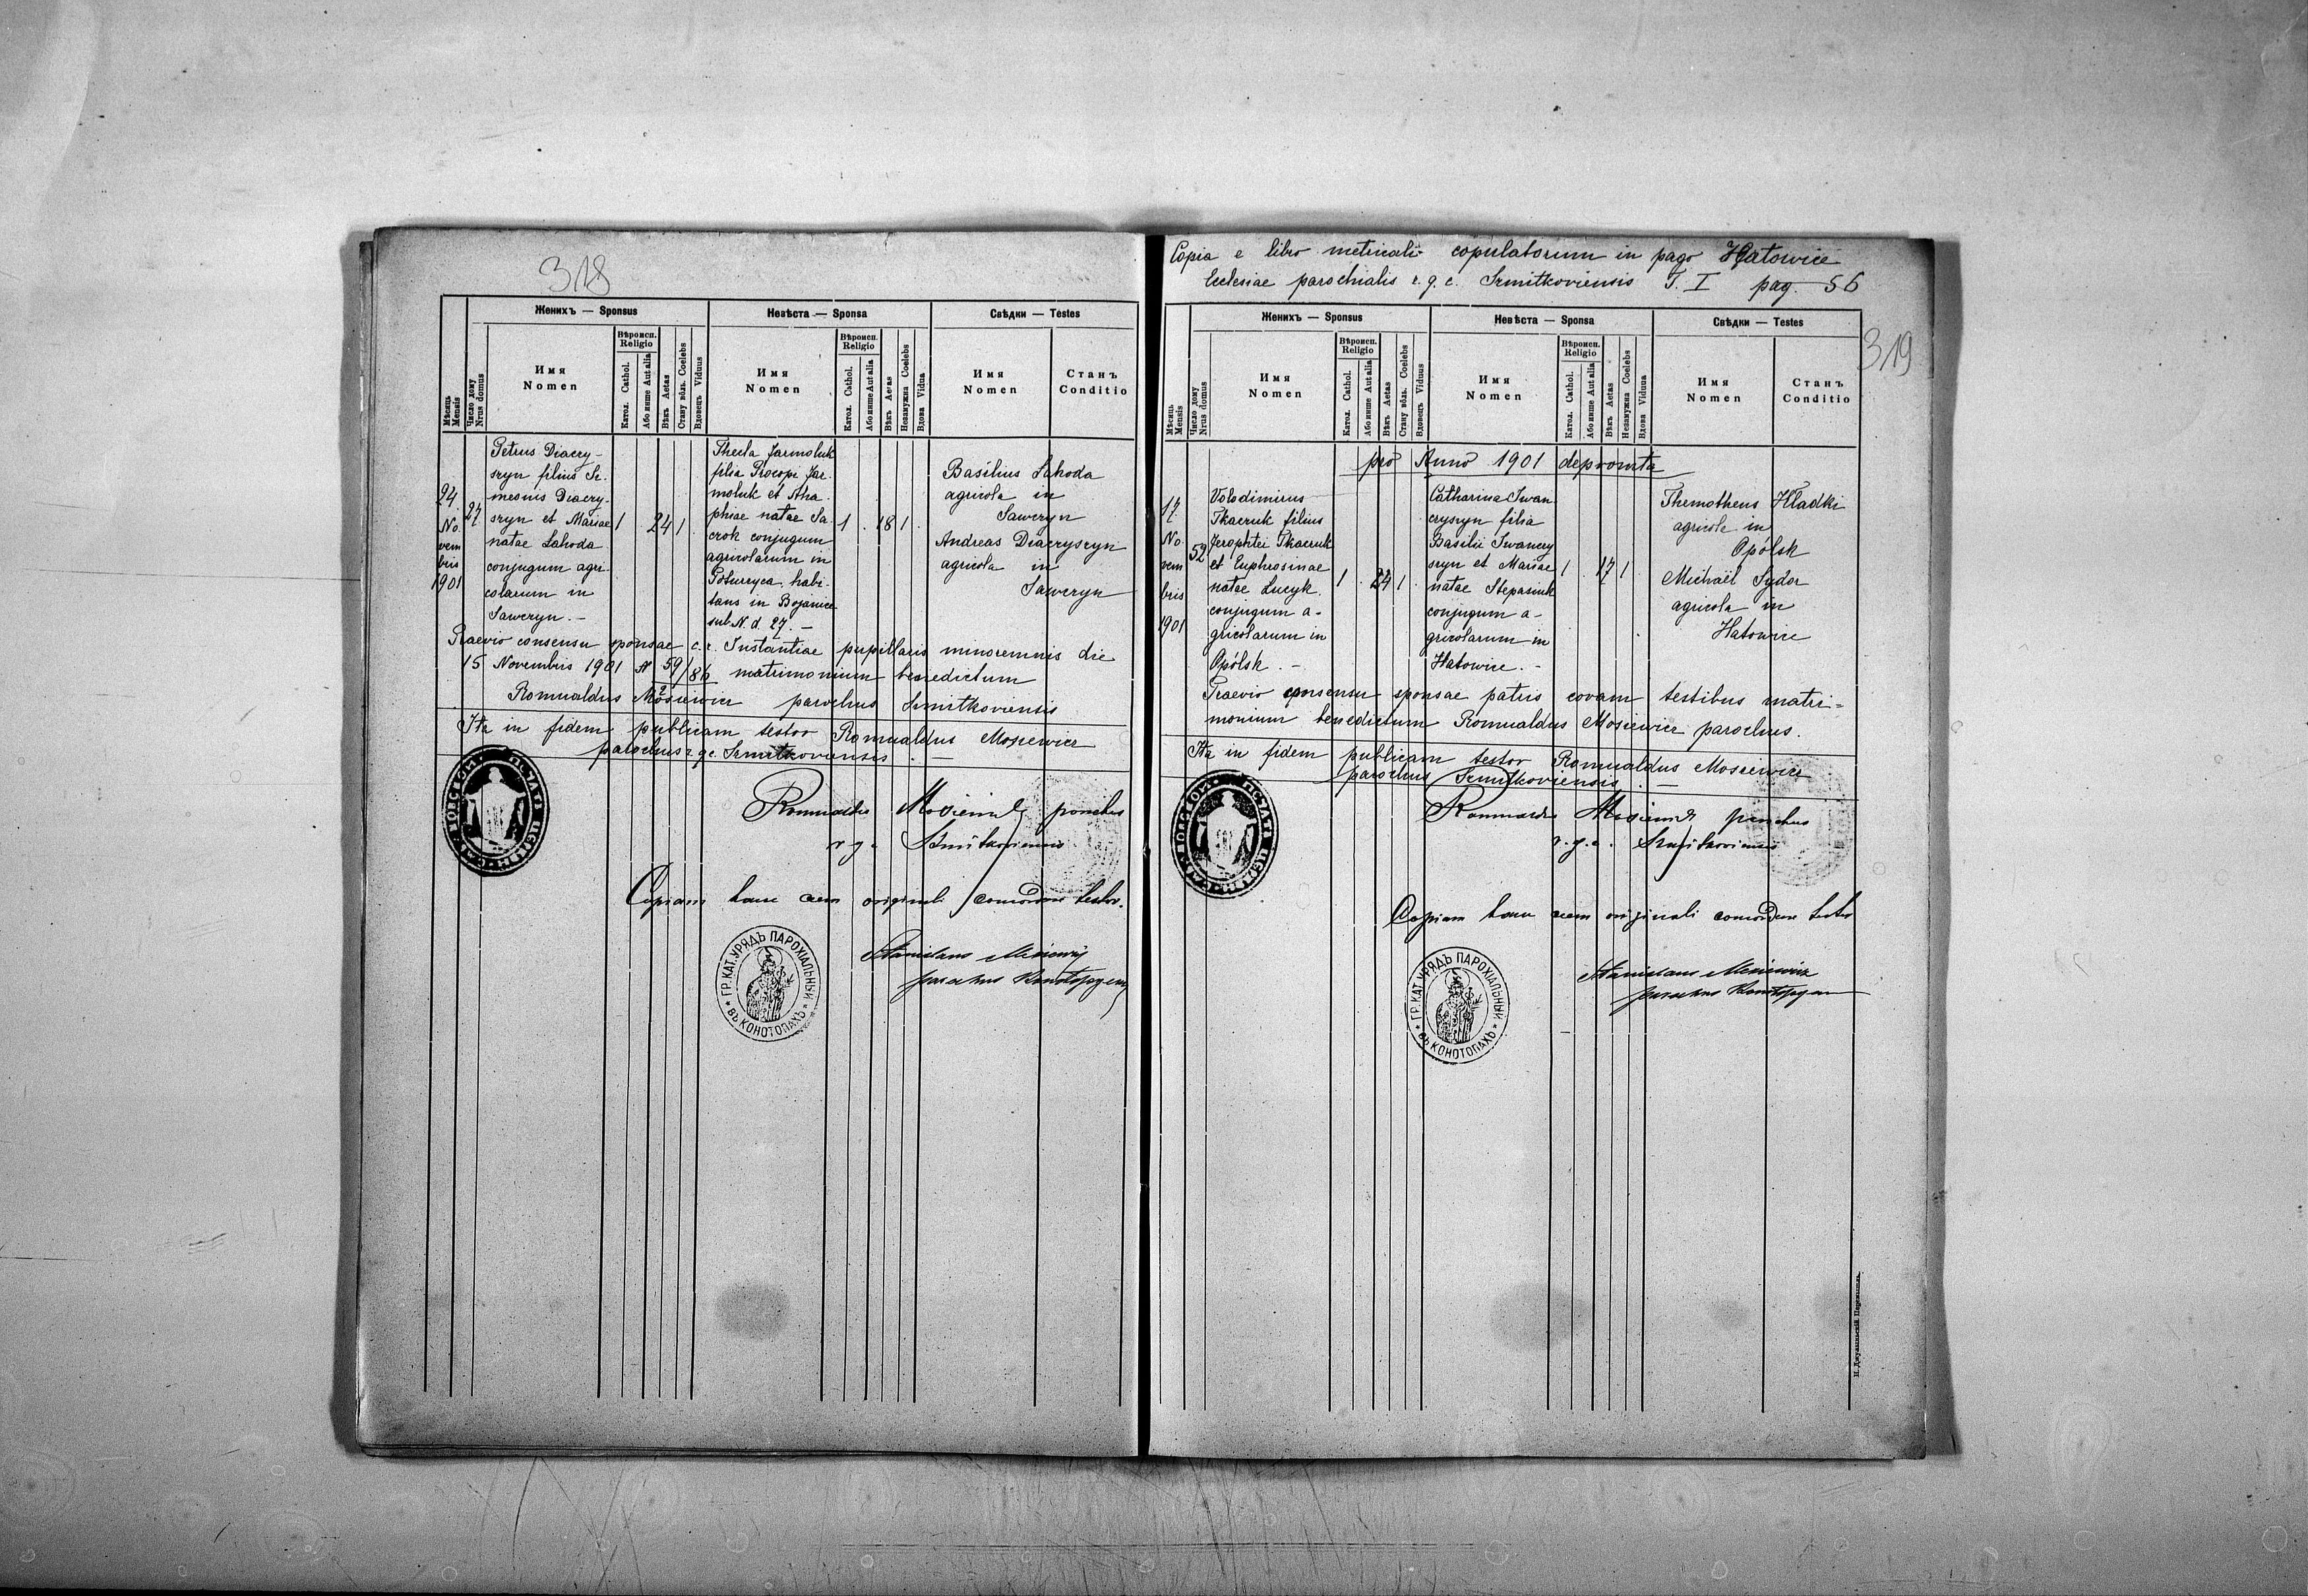 318
Женихъ — Sponsus
Невѣста — Sponsa
Свѣдки — Testes
Мѣсяць Mensis
Число дому Nrus domus
Имя
Nomen
Вѣроисп.
Religio
Катол. Cathol.
Або инше Aut alia
Вѣкъ Aetas
Стану вôльн. Coelebs
Вдовець Viduus
Имя
Nomen
Вѣроисп.
Religio
Катол. Cathol.
Або инше Aut alia
Вѣкъ Aetas
Незамужна Coelebs
Вдова Vidua
Имя
Nomen
Станъ
Conditio
24
No
vem
bris
1901
27
Petrus Diaczy-
szyn filius Se-
meonis Diaczy-
szyn et Mariae
natae Lahoda
conjugum agri-
colarum in
Sawczyn. —
1 24 1
Thecla Jarmoluk
filia Procopi Jar-
moluk et Aha-
phiae natae Sa-
czok conjugum
agricolarum in
Poturzyca, habi-
tans in Bojanice
sub N. d. 27. —
1 18 1
Basilius Lahoda
agricola in
Sawczyn
Andreas Diaczyszyn
agricola in
Sawczyn
Praevio consensu sponsae c. r. Instantiae pupillaris minorennis die
15 Novembris 1901 N 59/86 matrimonium benedictum
2
Romualdus Mosiewicz parochus Szmitkoviensis
Ita in fidem publicam testor Romualdus Mosiewicz
parochus r. g. c. Szmitkoviensis. —
Romualdus Mosiewicz parochus
r. g. c. Szmitkoviensis
Copiam hanc cum originali concordare testor.
Stanislaus Mosiewicz
parochus
ГР. КАТ. УРЯДЪ ПАРОХІАЛЬНЫЙ
ВЪ КОНОТОПАХЪ
Copia e libro metricali copulatorum in pago Hatowice
Ecclesiae parochialis r. g. c. Szmitkoviensis T. I pag. 56
319
Женихъ — Sponsus
Невѣста — Sponsa
Свѣдки — Testes
Мѣсяць Mensis
Число дому Nrus domus
Имя
Nomen
Вѣроисп.
Religio
Катол. Cathol.
Або инше Aut alia
Вѣкъ Aetas
Стану вôльн. Coelebs
Вдовець Viduus
Имя
Nomen
Вѣроисп.
Religio
Катол. Cathol.
Або инше Aut alia
Вѣкъ Aetas
Незамужна Coelebs
Вдова Vidua
Имя
Nomen
Станъ
Conditio
pro Anno 1901 deprompta
17
No
vem
bris
1901
52
Volodimirus
Tkaczuk filius
Jerophtei Tkaczuk
et Euphrosinae
natae Lucyk
conjugum a-
gricolarum in
Opólsk. —
1 24 1
Catharina Iwan
czyszyn filia
Basilii Iwanczy
szyn et Mariae
natae Stepaniuk
conjugum a-
gricolarum in
Hatowice. —
1 17 1
Themotheus Hladki
agricola in
Opólsk
Michaël Sydor
agricola in
Hatowice
Praevio consensu sponsae patris coram testibus matri=
monium benedictum Romualdus Mosiewicz parochus.
Ita in fidem publicam testor Romualdus Mosiewicz
parochus Szmitkoviensis. —
Romualdus Mosiewicz parochus
r. g. c. Szmitkoviensis
Copiam hanc cum originali concordare testor
Stanislaus Mosiewicz
parochus
ГР. КАТ. УРЯДЪ ПАРОХІАЛЬНЫЙ
ВЪ КОНОТОПАХЪ